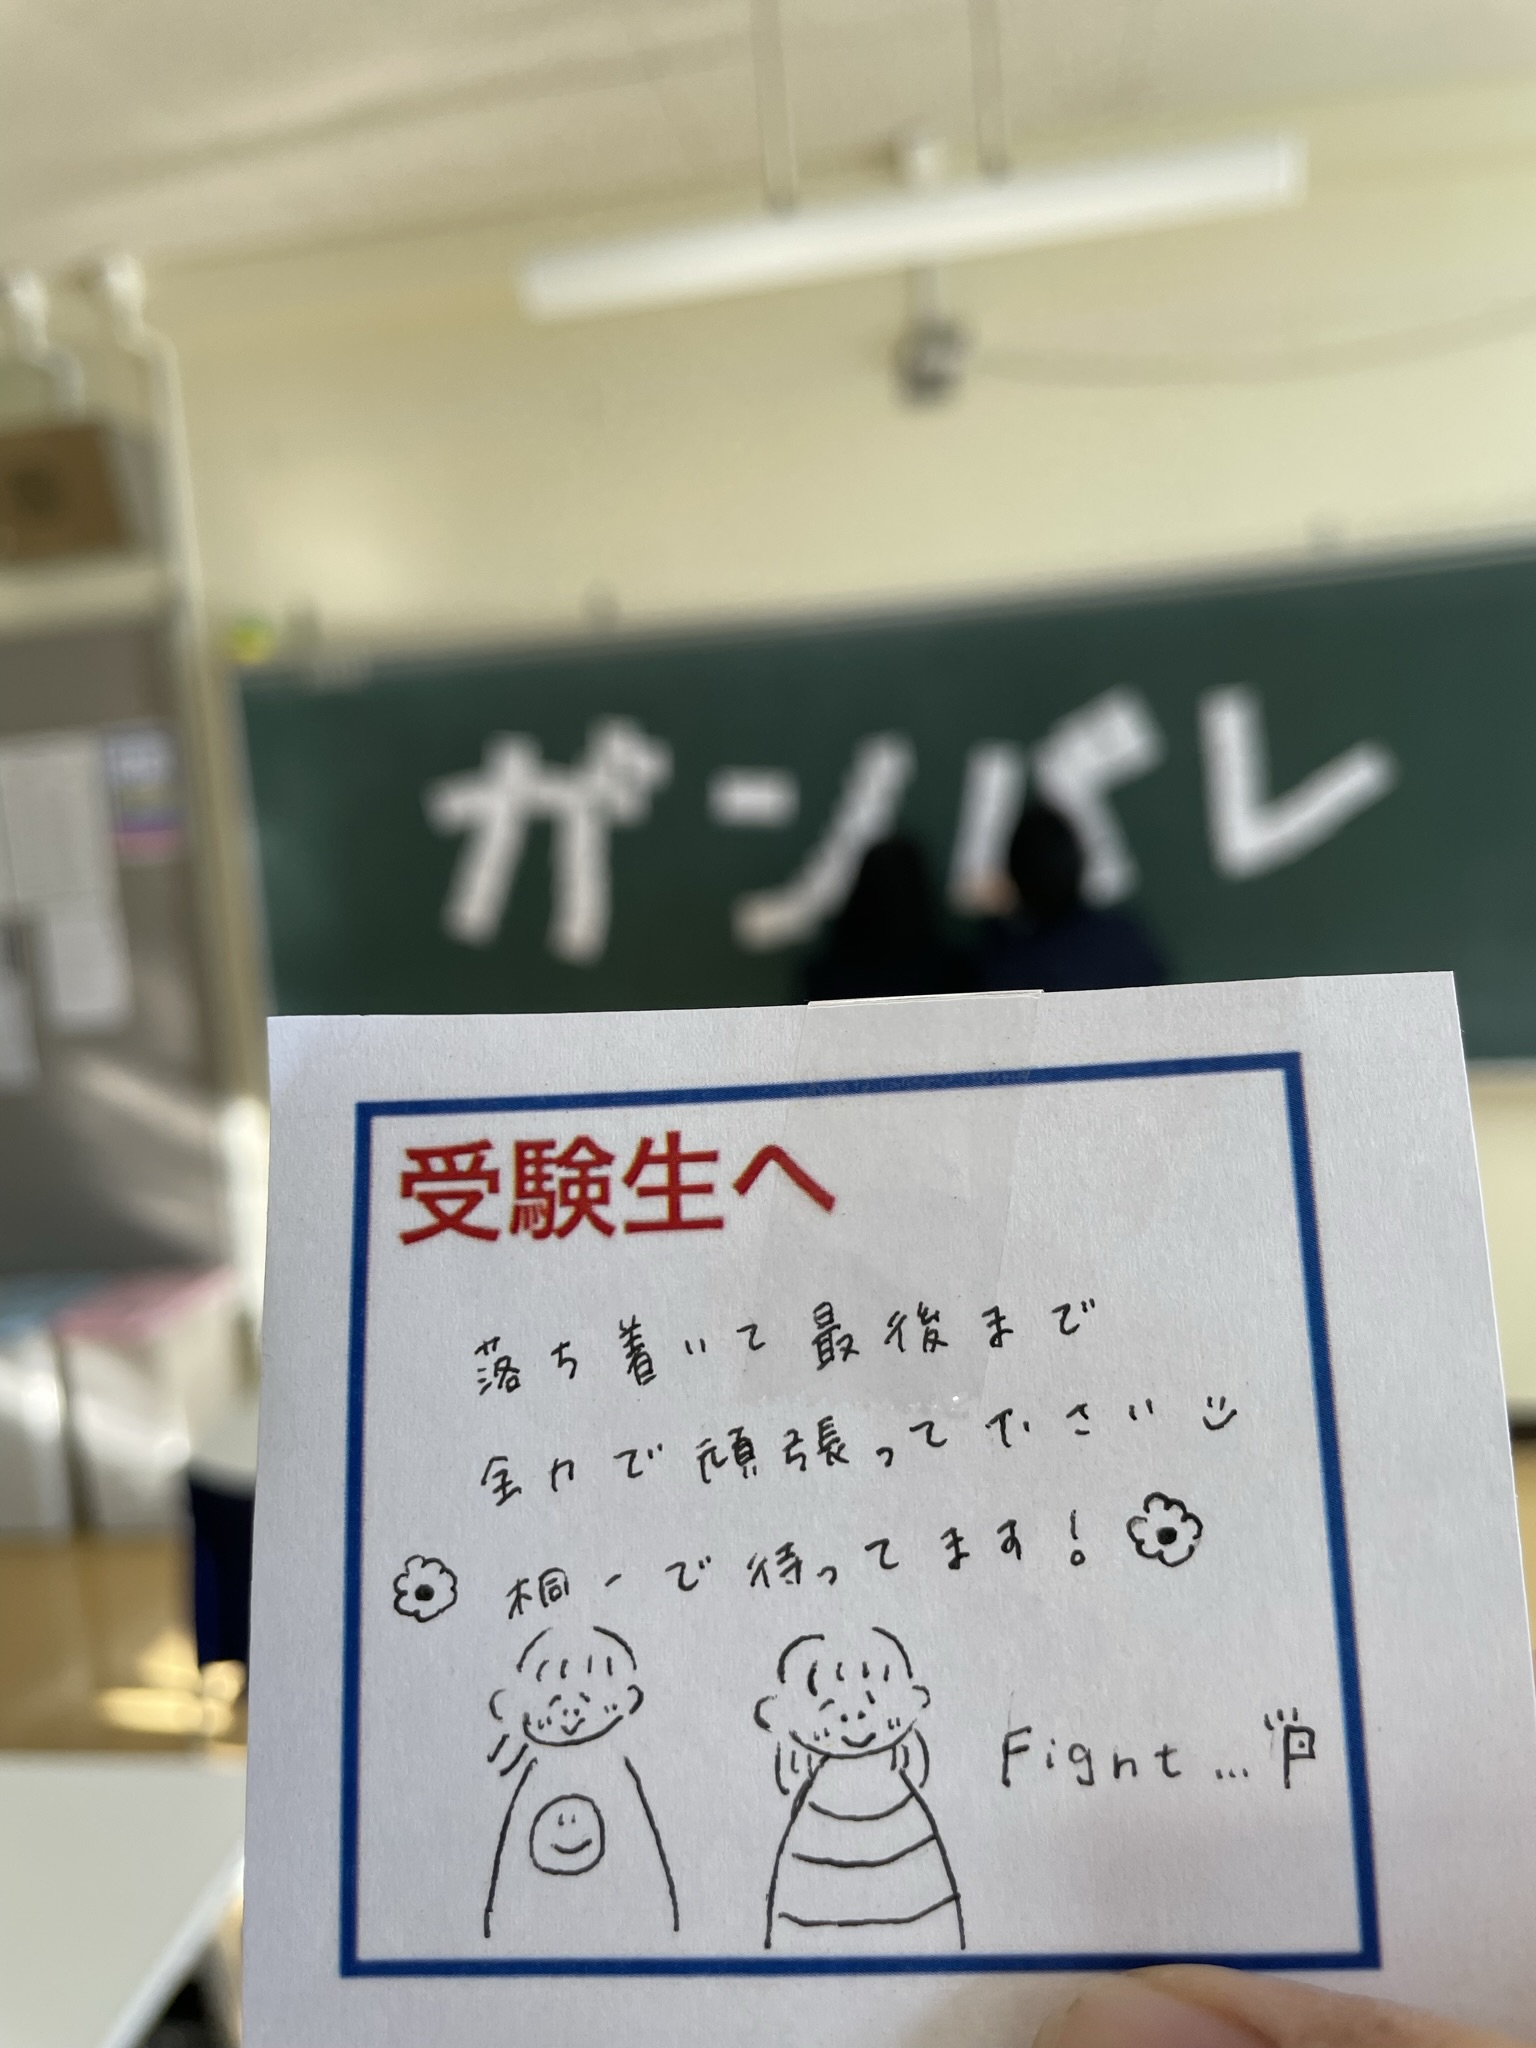 ガンバレ
受験生へ
落ち着いて最後まで
全力で頑張ってださい
桐一で待ってます!
Fight...